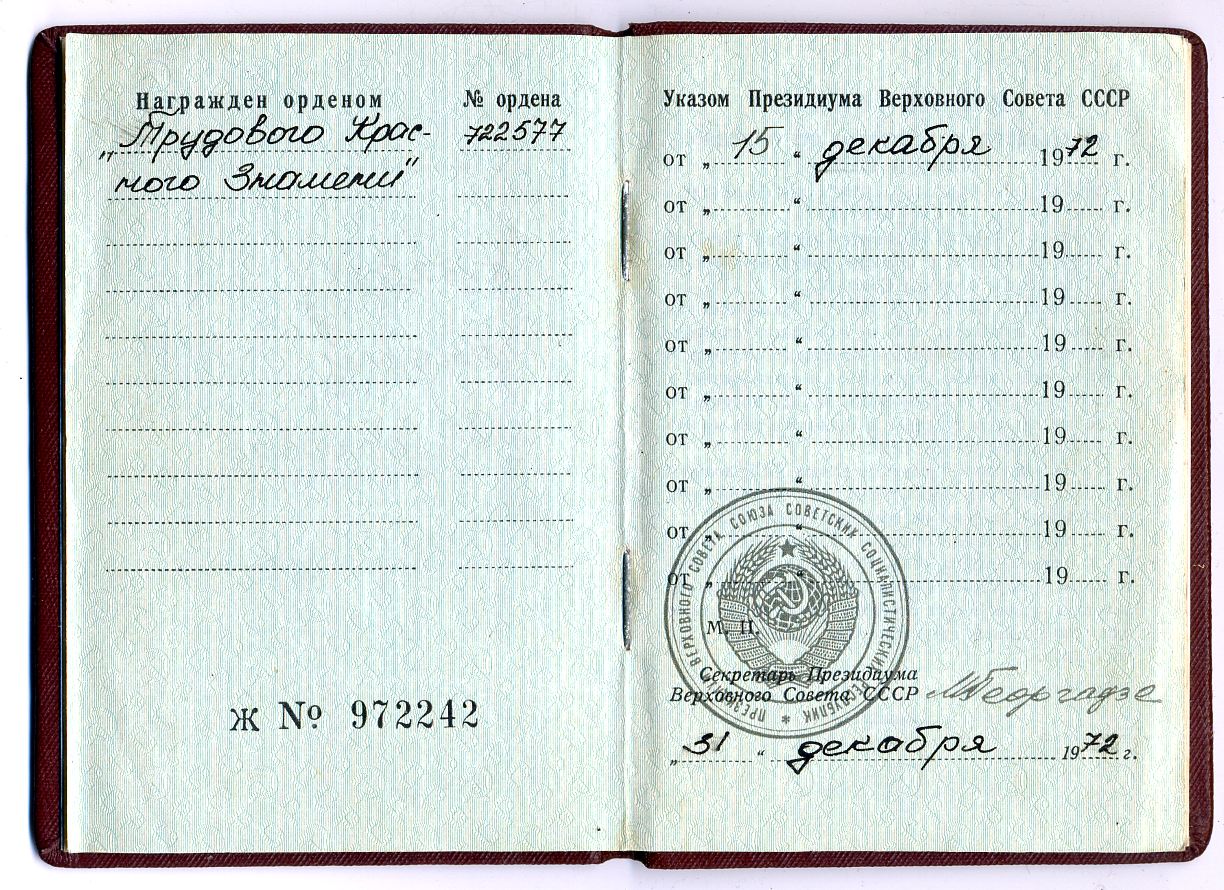 Награжден орденом № ордена
„Трудового Крас- 722577
ного Знамени"
ж № 972242
Указом Президиума Верховного Совета СССР
от „ 15 “ декабря 1972 г.
от „ “ 19 г.
от „ “ 19 г.
от „ “ 19 г.
от „ “ 19 г.
от „ “ 19 г.
от „ “ 19 г.
от „ “ 19 г.
от „ “ 19 г.
от „ “ 19 г.
М. П.
ПРЕЗИДИУМ ВЕРХОВНОГО СОВЕТА СОЮЗА СОВЕТСКИХ СОЦИАЛИСТИЧЕСКИХ РЕСПУБЛИК *
Секретарь Президиума
Верховного Совета СССР МГеоргадзе
„ 31 “ декабря 1972 г.